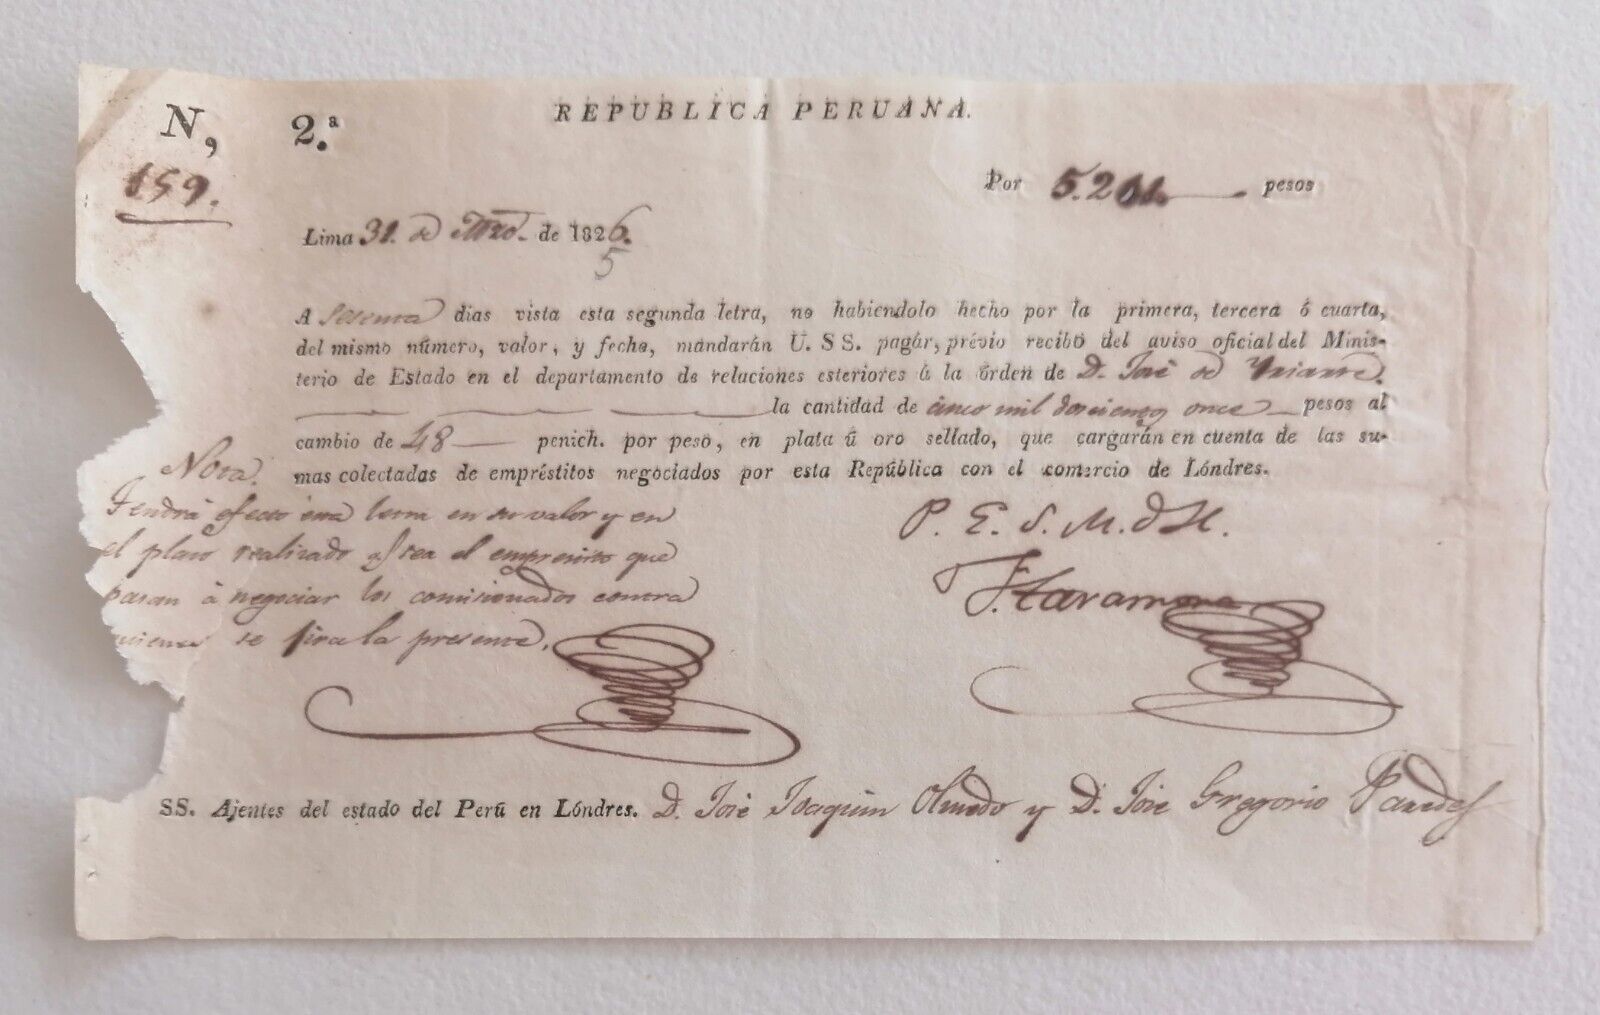 REPUBLICA PERUANA.
N, 2.ª
159.
Por 5.211. pesos
Lima 31. de Mzo. de 1826.
5
A Sesenta dias vista esta segunda letra, no habiendolo hecho por la primera, tercera ó cuarta,
del mismo número, valor, y fecha, mandarán U. SS. pagár, prévio recibo del aviso oficial del Minis-
terio de Estado en el departamento de relaciones esteriores á la órden de D. José de Yriarte.
la cantidad de cinco mil doscientos once pesos al
cambio de 48 penich. por peso, en plata ú oro sellado, que cargarán en cuenta de las su-
mas colectadas de empréstitos negociados por esta República con el comercio de Lóndres.
Nota.
Tendrá efecto esta letra en su valor y en
el plazo realizado q.e sea el emprestito que
pasan á negociar los comisionados contra
quienes se jira la presente.
P. E. S. M. d H.
J. Larrea
SS. Ajentes del estado del Perú en Lóndres. D. José Joaquin Olmedo y D. José Gregorio Paredes